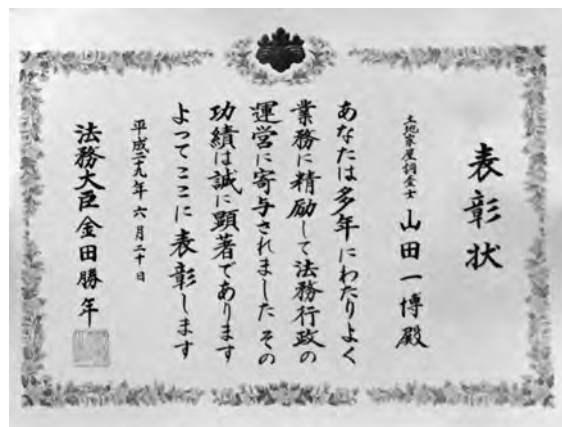 表彰状
土地家屋調査士 山田一博殿
あなたは多年にわたりよく
業務に精励して法務行政の
運営に寄与されました その
功績は誠に顕著であります
よってここに表彰します
平成二九年六月二十日
法務大臣 金田勝年